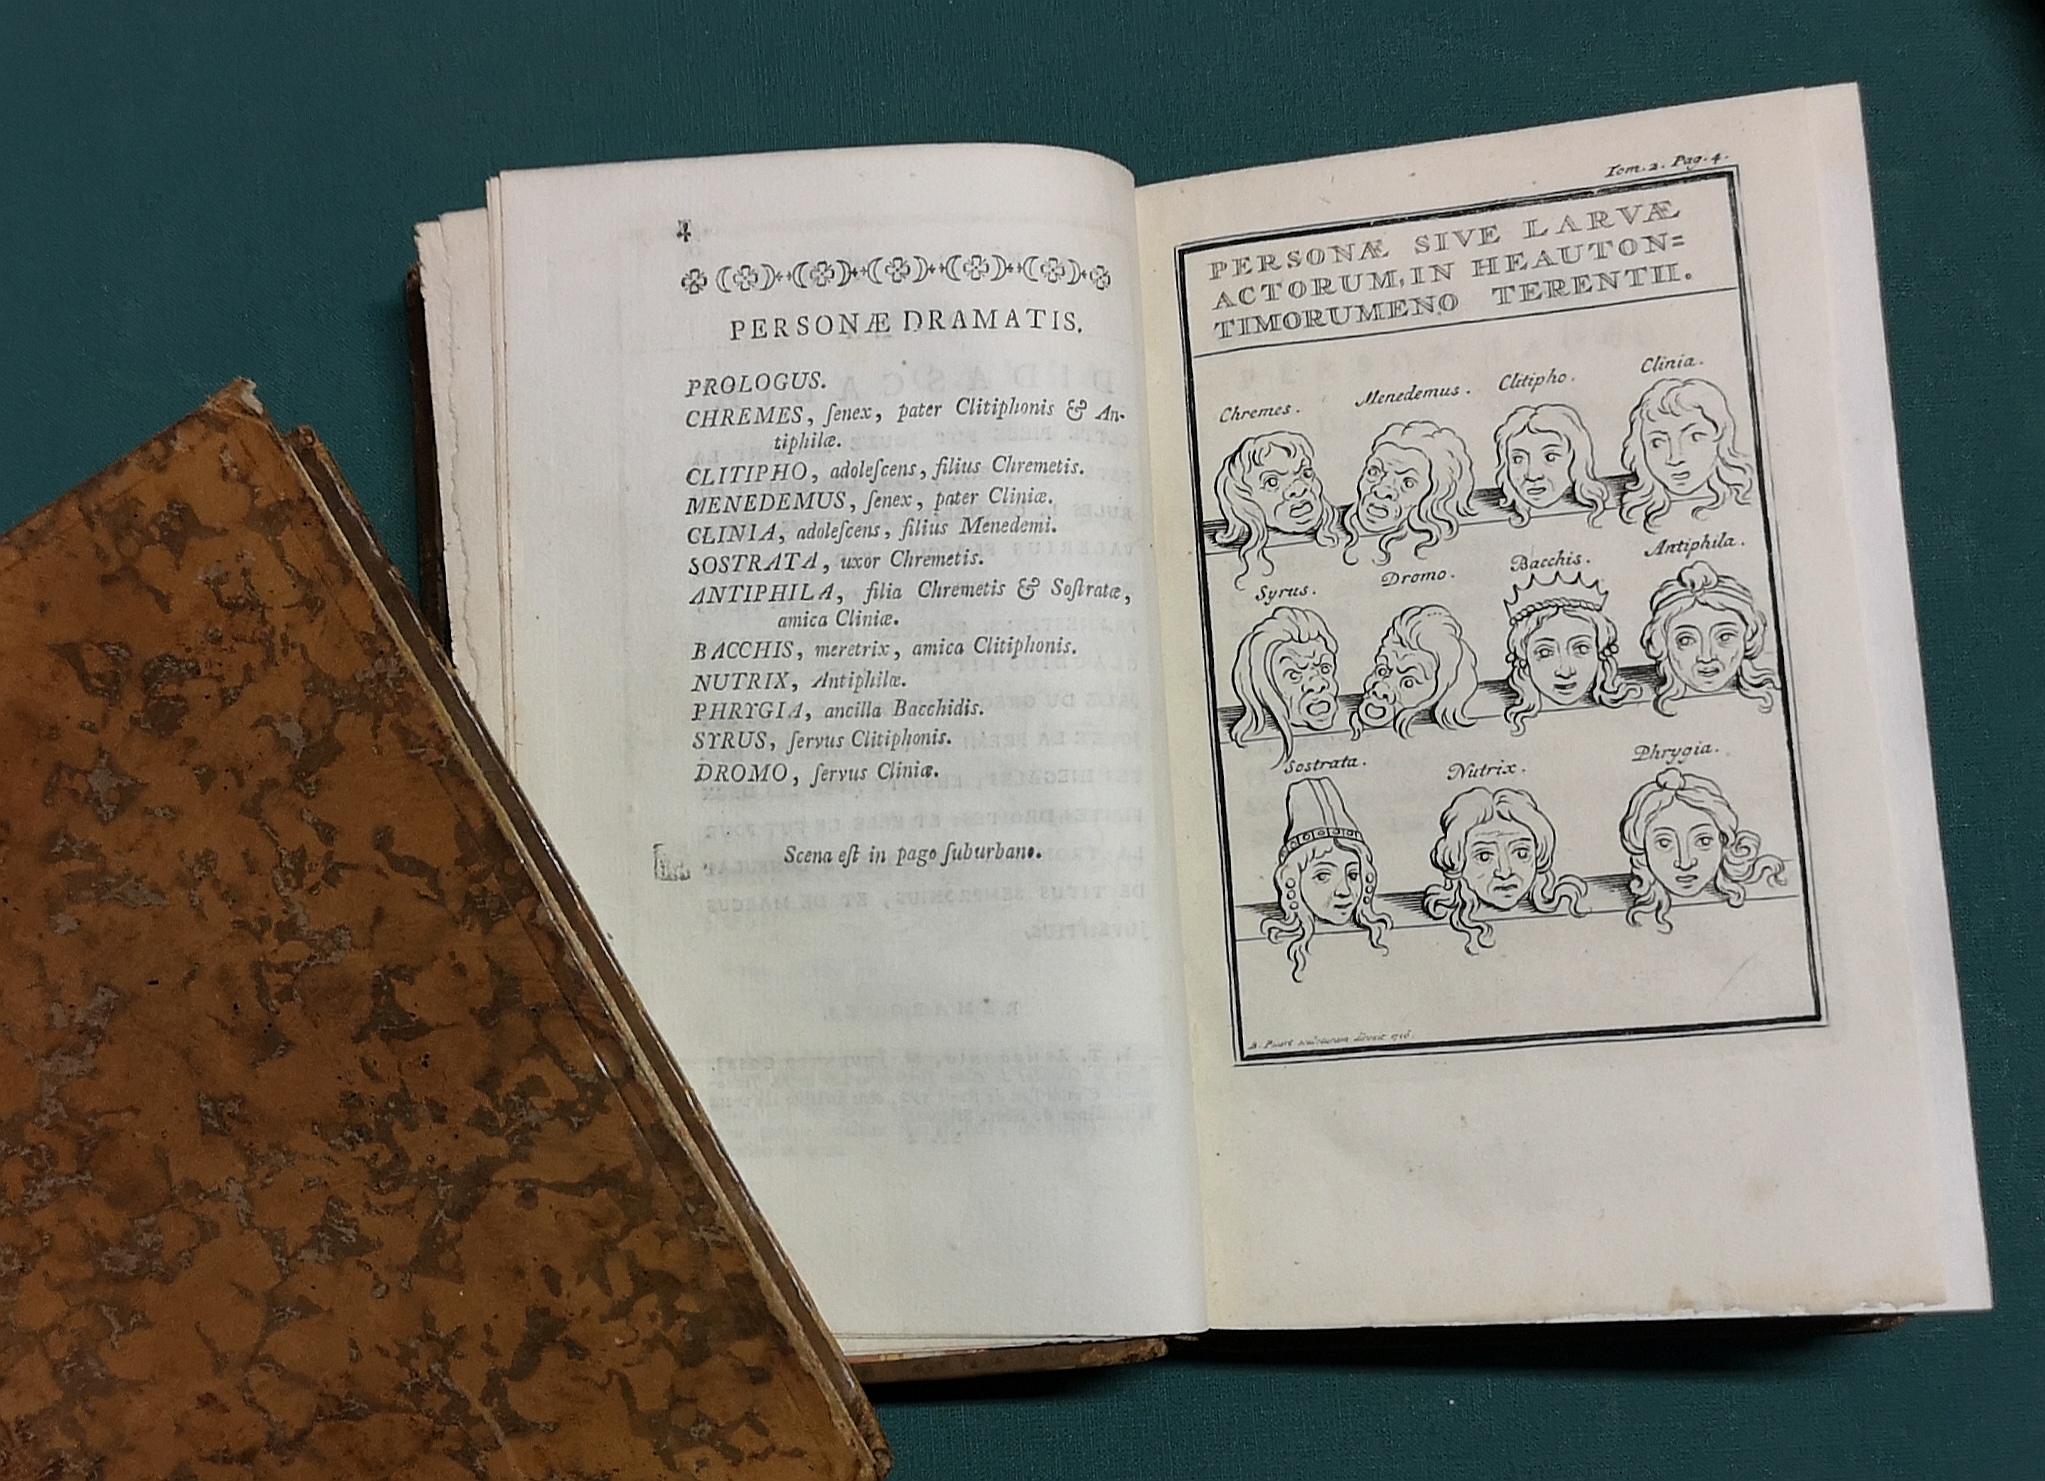 4
PERSONÆ DRAMATIS.
PROLOGUS.
CHREMES, ſenex, pater Clitiphonis & An-
tiphilæ.
CLITIPHO, adoleſcens, filius Chremetis.
MENEDEMUS, ſenex, pater Cliniæ.
CLINIA, adoleſcens, filius Menedemi.
SOSTRATA, uxor Chremetis.
ANTIPHILA, filia Chremetis & Soſtratæ,
amica Cliniæ.
BACCHIS, meretrix, amica Clitiphonis.
NUTRIX, Antiphilæ.
PHRYGIA, ancilla Bacchidis.
SYRUS, ſervus Clitiphonis.
DROMO, ſervus Cliniæ.
Scena eſt in pago ſuburbano.
Tom. 2. Pag. 4.
PERSONÆ SIVE LARVÆ
ACTORUM, IN HEAUTON=
TIMORUMENO TERENTII.
Chremes. Menedemus. Clitipho. Clinia.
Syrus. Dromo. Bacchis. Antiphila.
Sostrata. Nutrix. Phrygia.
B. Picart direxit